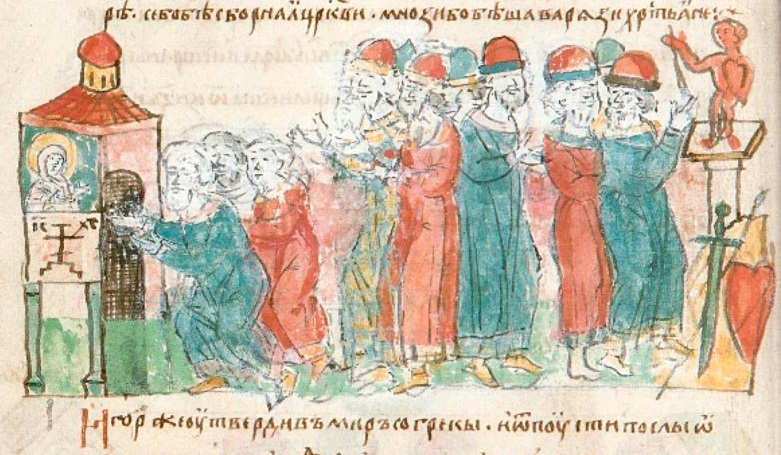 рѣе. се бо бѣ сборнаꙗ цр҃кви · мнози бо бѣша варѧзи хр҃тьꙗне:
їс хс
Игор же оутвердивъ миръ со грекы · и ѿпоусти послы ѿ